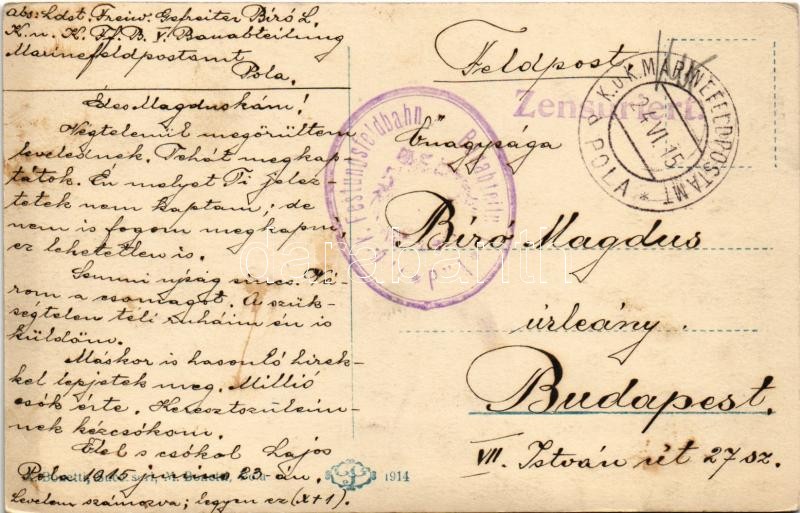 abs: Ldst. Freiw. Gefreiter Bíró L.
K. u. K. Ff. B. V. Bauabteilung
Marinefeldpostamt
Pola.
Édes Magduskám!
Végtelenül megörültem
levelednek. Tehát megkap-
tátok. Én melyet Ti jelez-
tetek nem kaptam; de
nem is fogom megkapni,
ez lehetetlen is.
Semmi ujság sincs. Vá-
rom a csomagot. A szük-
ségtelen téli ruháim én is
küldöm.
Máskor is hasonló hirek-
kel lepjetek meg. Millió
csók érte. Keresztszüleim-
nek kézcsókom.
Ölel s csókol Lajos
Pola 1915 junius 23-án.
Levelem számozva; legyen ez (x+1).
1914
Feldpost.
Zensuriert.
K.u.K. MARINEFELDPOSTAMT
24.VI.15
d POLA *
K.u.K. Festungsfeldbahn
Pola
Őnagysága
Bíró Magdus
úrleány.
Budapest.
VII. István út 27 sz.
darabanth